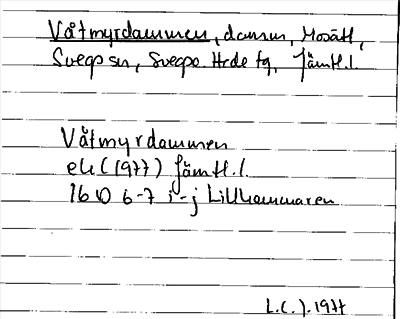 Våtmyrdammen, damm, Mosätt,
Svegs sn, Svegs Hrde tg, Jämtl.l.
Våtmyrdammen
ek (1977) Jämtl.l.
16 D 6-7 i-j Lillhammaren
L.C.J. 1977